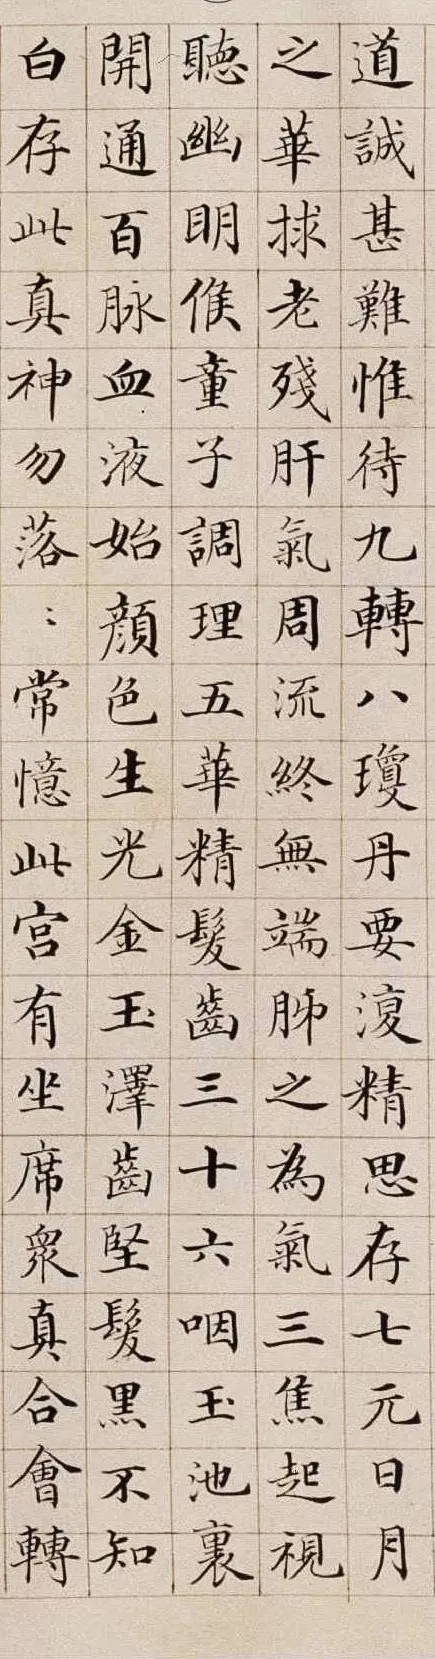 道誠甚難惟待九轉八瓊丹要復精思存七元日月
之華捄老殘肝氣周流終無端肺之為氣三焦起視
聽幽眀候童子調理五華精髮齒三十六咽玉池裏
開通百脉血液始顏色生光金玉澤齒堅髮黑不知
白存此真神勿落〻常憶此宮有坐席衆真合會轉